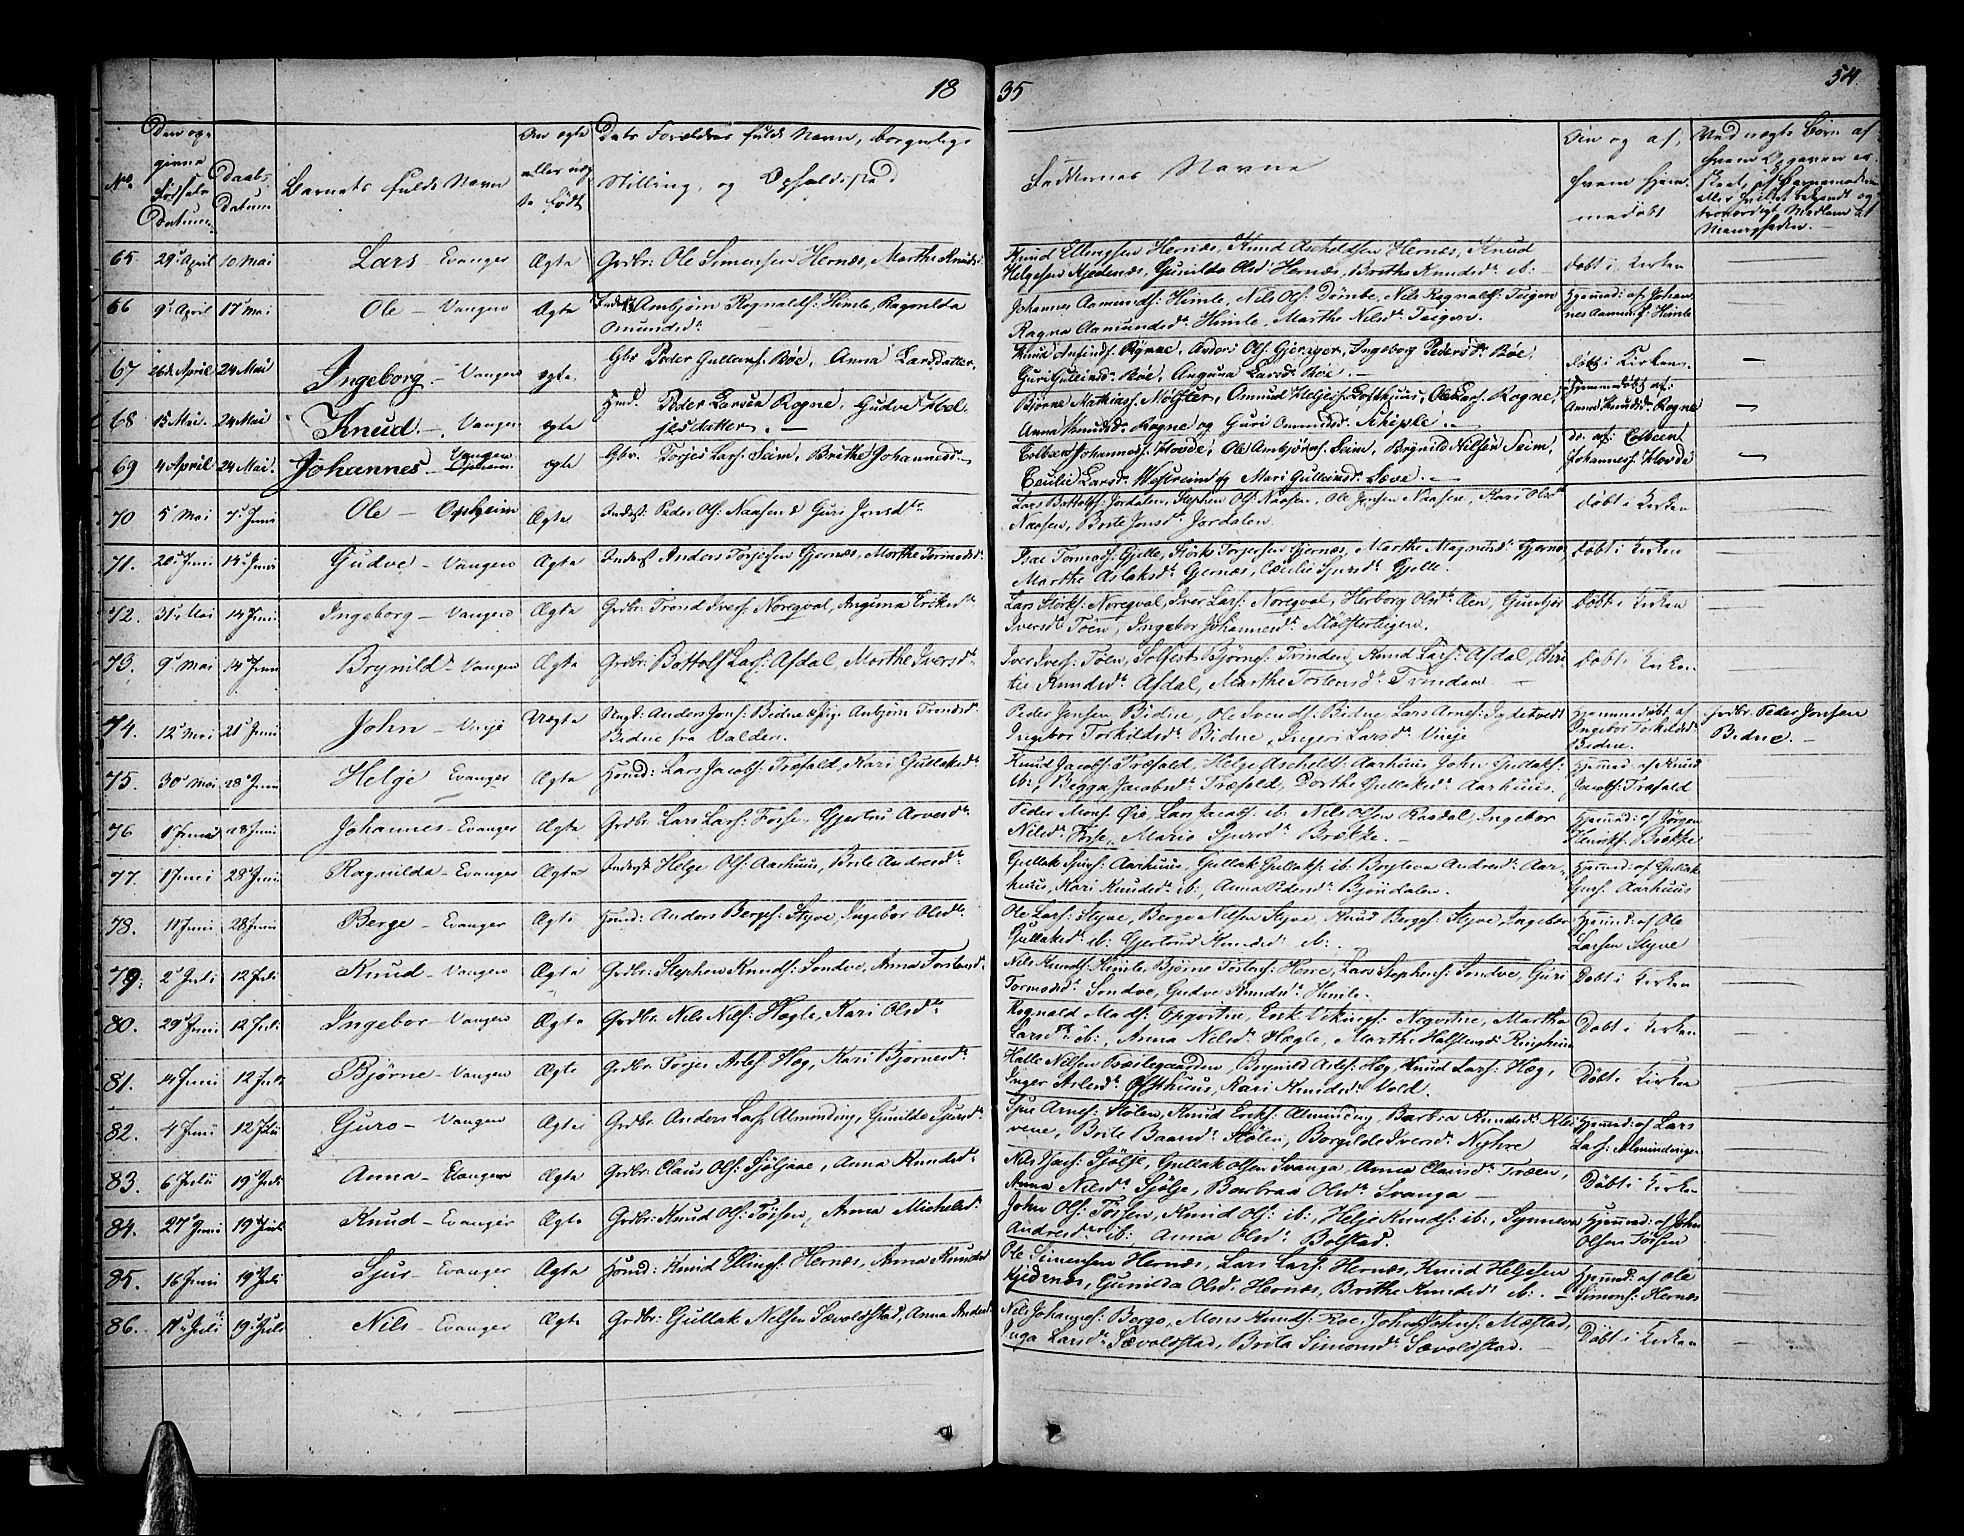 18
35
54.
No.
Den op-
givne
Fødsels
Datum
Daabs
Datum
Barnets fulde Navn
Om ægte
eller uæg
te født
Dets Forældres fulde Navn, borgerlige
Stilling, og Opholdssted
Faddernes Navne
Om og af
hvem hjem-
medøbt
65 29d April 10 Mai Lars - Evanger Ægte Grdbr: Ole Simensen Hernæs, Marthe Knudsd
Knud Ellingsen Hernæs, Knud Hernæs, Knud
Helgesen Kjedenæs, Gunilda Olsd Hernæs, Brithe Knudsdr ib: -
døbt i Kirken
66 9d April 17d Mai Ole - Vangen Ægte Ambjørn Rognaldsf: Himle, Ragnilda
Omundsdr
Johannes Aamundsf: Himle, Nils Olsf: Dömbe, Nils Rognaldsf: Teigen
Ragna Aamundsdr Himle, Marthe Nilsdr Teigen.
Hjemmed: af Johan-
nes Aamundsf: Himle
67 26d April 24 Mai Ingeborg - Vangen ægte Gbr Peder Gulleinsf. Bøe, Anna Larsdatter,
Knud Rynne, Anders Olsf: Gjerager, Ingeborg Pedersdr Bøe,
Guri Gulleinsdr Bøe, Anguna Larsdr Bøe. -
døbt i Kirken.
68 15 Mai. 24 Mai Knud. - Vangen ægte Hmd. Peder Larsen Rogne, Gudve Hel-
jesdatter. -
Bjørne Mathiasf. Mølster, Omund Helgesf. Lofthuus, Ole Larsf. Rogne,
Anna Knudsdr Rogne og Guri Omundsdr Schiple. -
Hjemmedøbt af:
Anna Knudsdr Rogne
69 4 April 24 Mai. Johannes - Vangen ægte Gbr. Torjer Larsf. Seim, Brithe Johannesdr -
Colbeen Johannesf. Hovde, Ole Ambjørnsf. Seim, Brynild Nilsen Seim,
Cecilie Larsdr Westreim og Mari Gulleinsdr Sæve. -
do. af: Colbeen
Johannesf. Hovde
70 5 Mai 7d Juni Ole - Opheim Ægte Inderst: Peder Olsf: Naasen & Guri Jonsdr
Lars Bottolfsf: Jordalen, Stephen Olsf: Naasen, Ole Jonsen Naasen, Kari Olsdr
Naasen, Brite Jonsdr Jordalen
døbt i Kirken
71. Gudve - Vangen Ægte Inderst Anders Torjersen Gjernæs, Marthe Tormodsdr
Isac Tormodsf: Gjelle, Størk Torjersen Gjernæs, Marthe Magnusdr Gjernæs,
Marthe Aslaksdr Gjernæs, Cecilie Sjursdr Gjelle.
døbt i Kirken
72. 31d Mai 14 Juni Ingeborg - Vangen Ægte Grdbr: Trond Iversf: Noreqval, Anguna Eriksdr
Lars Størksf: Noreqval, Iver Larsf: Noreqval, Herborg Olsdr Øen, Gunbjør
Iversdr Töen, Ingebor Johannesdr Mølsterteigen.
døbt i Kirken
73. 9d Mai 14d Juni Brynild - Vangen Ægte Grdbr: Bottolf Larsf: Afdal, Marthe Iversdr
Iver Iversf: Töen, Solfest Björnsf: Trinden, Knud Larsf: Afdal, Chri
stie Knudsdr Afdal, Marthe Torstensdr Trinden -
døbt i Kirken
74. 12 Mai 21d Juni John - Vinje Uægte Ungd: Anders Jonsf: Bidne & Pige Anbjörn Trondsd
Bidne fra Valders.
Peder Jonsen Bidne, Ole Svendsf: Bidne Lars Arnesf:
Ingebor Torkildsdr Bidne, Ingeri Larsdr Vinje
Hjemmedøbt af
Ingebor Torkildsdr
Bidne.
Grdbr: Peder Jonsen
Bidne. -
75. 30d Mai 28d Juni Helge Evanger Ægte Huusmd: Lars Jacobsf: Træfald, Kari Gullaksdr
Knud Jacobsf: Træfald, Helge Aarhuus John Gullaksf:
ib:, Begga Jacobsdr Træfald, Dorthe Gullaksdr Aarhuus.
Hjemmed: af Knud
Jacobsf: Træfald
76 1 Junii 28 Juni Johannes - Evanger Ægte Grdbr: Lars Larsf: Fosse, Gjertru Arvesdr
Peder Monsf: Øie, Lars Jacobsf: ib: Nils Olsen Rasdal, Ingebor
Nilsdr Fosse, Marie Sjursdr Brække. -
Hjemmed: af Jørgen
Henriksf: Brække
77. 1 Juni 28d Juni Ragnilda - Evanger Ægte Inderst Helge Olsf: Aarhuus, Brite Andersdr
Gullak Aarhuus, Gullak Gullaksf: ib: Boyleva Andersdr Aar-
huus, Kari Knudsdr ib:, Anna Pedersdr Bjöndalen.
Hjemmed: af Gullak
Aarhuus
78. 11 Juni 28 Juni Berge - Evanger Ægte Huusmd: Anders Bergesf: Styve, Ingebor Olsdr
Ole Larsf: Styve, Berge Nilsen Styve, Knud Bergesf: Styve, Ingebor
Gullaksdr ib: Gjertrud Knudsdr ib: .
Hjemmed: af Ole
Larsen Styve
79. 2d Juli 12 Juli Knud - Vangen Ægte Grdbr: Stephen Knudsf: Sondve, Anna Torstensdr
Nils Knudsf: Himle, Bjørne Torstensf: Herre, Lars Stephensf: Sondve, Guri
Tormodsdr Sondve, Gudve Knudsdr Himle.
Døbt i Kirken
80. 29d Juni 12 Juli Ingebor - Vangen Ægte Grdbr: Nils Nilsf: Hægle, Kari Olsdr
Rognald Madsf: Opqvitne, Erik Vikingsf: Neqvitne, Martha
Larsdr ib:, Anna Nilsdr Hægle, Marthe Halstensdr Ringheim
Døbt i Kirken
81. 14 Juni 12 Juli Bjørne - Vangen Ægte Grdbr: Torjer Arlesf: Hæg, Kari Bjørnesdr
Halle Nilsen Prestegaarden, Brynild Arlesf: Hæg, Knud Larsf: Hæg,
Inger Arlesdr Ofsthuus, Kari Knudsdr Vold.
Døbt i Kirken
82. 4 Junii 12 Juli Guro - Vangen Ægte Grdbr: Anders Larsf: Alminding, Gunilda Sjursdr
Sjur Arnesf: Stölen, Knud Eriksf: Alminding, Barbra Knudsdr Klei
vene, Brite Baarsdr Stölen, Borgilde Iversdr Nyhre
Hjemmed: af Lars
Larsf: Almindinge
83. 6 Julii 19d Juli Anna - Evanger Ægte Grdbr: Claus Olsf: Sjöljane, Anna Knudsdr
Nils Sjölje, Gullak Olsen Svanga, Anna Clausdr Træen,
Anna Nilsdr Sjölje, Barbraa Olsdr Svanga -
Døbt i Kirken
84. 27d Juni 19d Juli Knud - Evanger Ægte Grdbr: Knud Olsf: Törsen, Anna Michelsdr
John Olsf: Torsen, Knud Olsf: ib:, Helje Knudsf: ib:, Synneva
Andersdr ib: Anna Olsdr Bolstad.
Hjemmed: af John
Olsen Törsen
85. 16 Juni 19d Juli Sjur - Evanger Ægte Huusmd: Knud Ellingsf: Hernæs, Anna Knudsd
Ole Simensen Hernæs, Lars Larsf: Hernæs, Knud Helgesen
Kjedenæs, Gunilda Olsd: Hernæs, Brithe Knudsdr ib: -
Hjemmed: af Ole
Simonsf: Hernæs
86. 11d Juli 19d Juli Nils - Evanger Ægte Grdbr: Gullak Nilsen Sævoldstad, Anna Andersd:
Nils Johannesf: Berge, Mons Knudsf: Röe, John Johnsf: Mestad,
Inga Larsdr Sævoldstad, Brita Simonsdr Sævoldstad. -
Døbt i Kirken